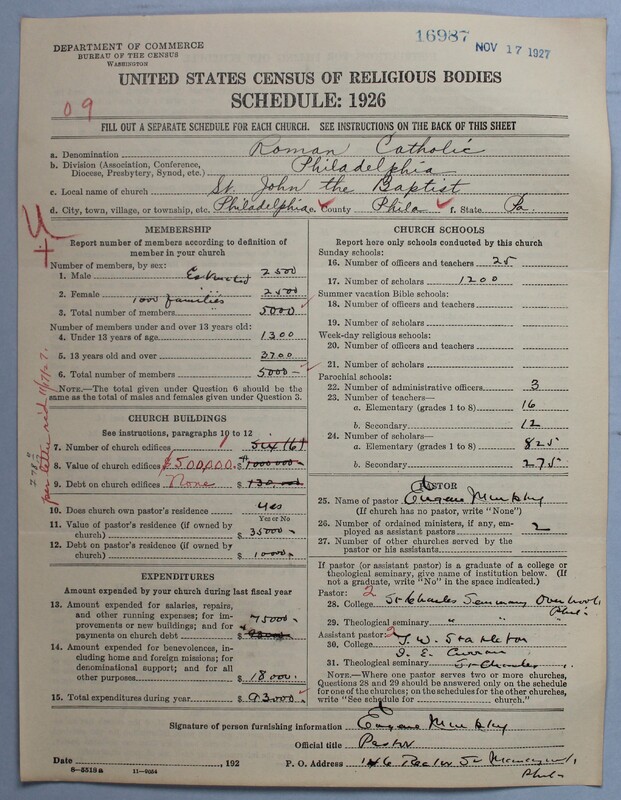 16987 NOV 17 1927
DEPARTMENT OF COMMERCE
BUREAU OF THE CENSUS
WASHINGTON
UNITED STATES CENSUS OF RELIGIOUS BODIES
SCHEDULE: 1926
09
FILL OUT A SEPARATE SCHEDULE FOR EACH CHURCH. SEE INSTRUCTIONS ON THE BACK OF THIS SHEET
a. Denomination Roman Catholic
b. Division (Association, Conference, Diocese, Presbytery, Synod, etc.) Philadelphia
c. Local name of church St. John the Baptist
d. City, town, village, or township, etc. Philadelphia e. County Phila f. State Pa.
MEMBERSHIP
Report number of members according to definition of
member in your church
Number of members, by sex:
1. Male Estimated 2500
2. Female 1000 families 2500
3. Total number of members 5000
Number of members under and over 13 years old:
4. Under 13 years of age 1300
5. 13 years old and over 3700
6. Total number of members 5000
NOTE.—The total given under Question 6 should be the
same as the total of males and females given under Question 3.
per letter rec'd
CHURCH BUILDINGS
See instructions, paragraphs 10 to 12
7. Number of church edifices 1 Six (6)
8. Value of church edifices $500,000. $1000000
9. Debt on church edifices None $130000
10. Does church own pastor's residence? Yes
Yes or No
11. Value of pastor's residence (if owned by
church) $35000
12. Debt on pastor's residence (if owned by
church) $10000
EXPENDITURES
Amount expended by your church during last fiscal year
13. Amount expended for salaries, repairs,
and other running expenses; for im-
provements or new buildings; and for
payments on church debt $75000
14. Amount expended for benevolences,
including home and foreign missions; for
denominational support; and for all
other purposes 18000.
15. Total expenditures during year $93000.
CHURCH SCHOOLS
Report here only schools conducted by this church
Sunday schools:
16. Number of officers and teachers 25
17. Number of scholars 1200
Summer vacation Bible schools:
18. Number of officers and teachers
19. Number of scholars
Week-day religious schools:
20. Number of officers and teachers
21. Number of scholars
Parochial schools:
22. Number of administrative officers 3
23. Number of teachers—
a. Elementary (grades 1 to 8) 16
b. Secondary 12
24. Number of scholars—
a. Elementary (grades 1 to 8) 825
b. Secondary 275
PASTOR
25. Name of pastor Eugene Murphy
(If church has no pastor, write "None")
26. Number of ordained ministers, if any, em-
ployed as assistant pastors 2
27. Number of other churches served by the
pastor or his assistants
If pastor (or assistant pastor) is a graduate of a college or
theological seminary, give name of institution below. (If
not a graduate, write "No" in the space indicated.)
Pastor: 2
28. College St Charles Seminary Overbrook Phila
29. Theological seminary " " "
Assistant pastor: 2
30. College J. W. Stapleton
J. E. Curran
31. Theological seminary St Charles
NOTE.—Where one pastor serves two or more churches,
Questions 28 and 29 should be answered only on the schedule
for one of the churches; on the schedules for the other churches,
write "See schedule for church."
Signature of person furnishing information Eugene Murphy
Official title Pastor
Date , 192 P. O. Address 146 Rector St Manayunk
Phila
8-5518a 11-9054